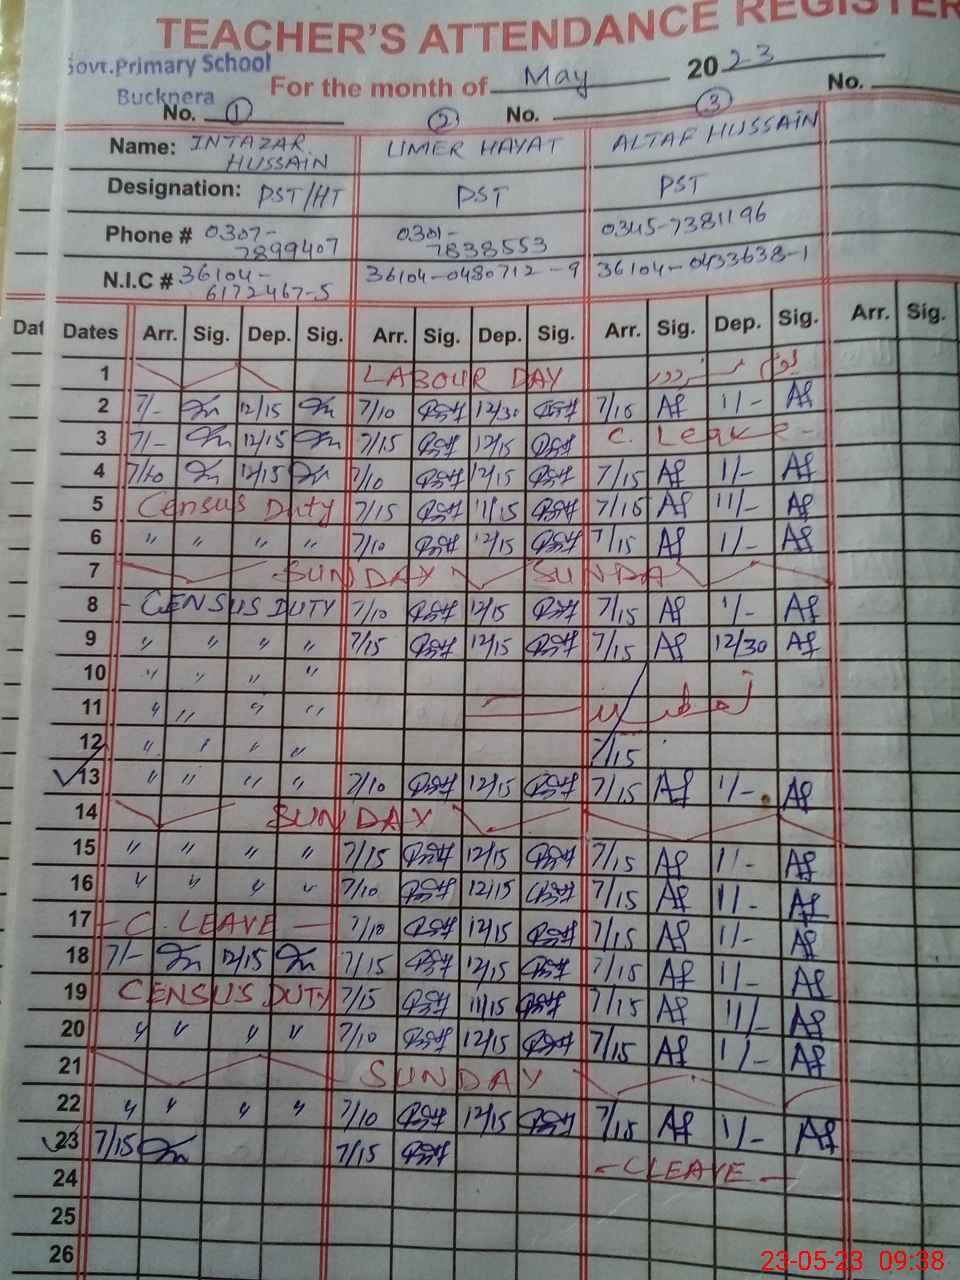 TEACHER'S ATTENDANCE REGISTER
Govt.Primary School
Bucknera
For the month of May 2023
No. 1 2 No. 3 No.
Name: INTAZAR HUSSAIN UMER HAYAT ALTAF HUSSAIN
Designation: PST/HT PST PST
Phone # 0307-7899407 0301-7838553 0345-7381196
N.I.C # 36104-6172467-5 36104-0480712-9 36104-0433638-1
Dat Dates Arr. Sig. Dep. Sig. Arr. Sig. Dep. Sig. Arr. Sig. Dep. Sig. Arr. Sig.
1 LABOUR DAY
2 7/- 12/15 7/10 12/30 7/10 Af 1/- Af
3 7/- 12/15 7/15 12/15 C. Leave -
4 7/10 12/15 7/10 12/15 7/15 Af 1/- Af
5 Census Duty 7/15 11/15 7/15 Af 11/- Af
6 " " " " 7/10 12/15 7/15 Af 1/- Af
7 SUNDAY SUNDA
8 - CENSUS DUTY 7/10 12/15 7/15 Af 1/- Af
9 " " " " 7/15 12/15 7/15 Af 12/30 Af
10 " " " "
11 " " " "
12 " " " " 7/15
13 " " " " 7/10 12/15 7/15 Af 1/- Af
14 SUNDAY
15 " " " " 7/15 12/15 7/15 Af 1/- Af
16 " " " " 7/10 12/15 7/15 Af 1/- Af
17 - C. LEAVE - 7/10 12/15 7/15 Af 1/- Af
18 7/- 12/15 7/15 12/15 7/15 Af 1/- Af
19 CENSUS DUTY 7/15 11/15 7/15 Af 11/- Af
20 " " " " 7/10 12/15 7/15 Af 1/- Af
21 SUNDAY
22 " " " " 7/10 12/15 7/15 Af 1/- Af
23 7/15 7/15 - C LEAVE -
24
25
26
23-05-23 09:38